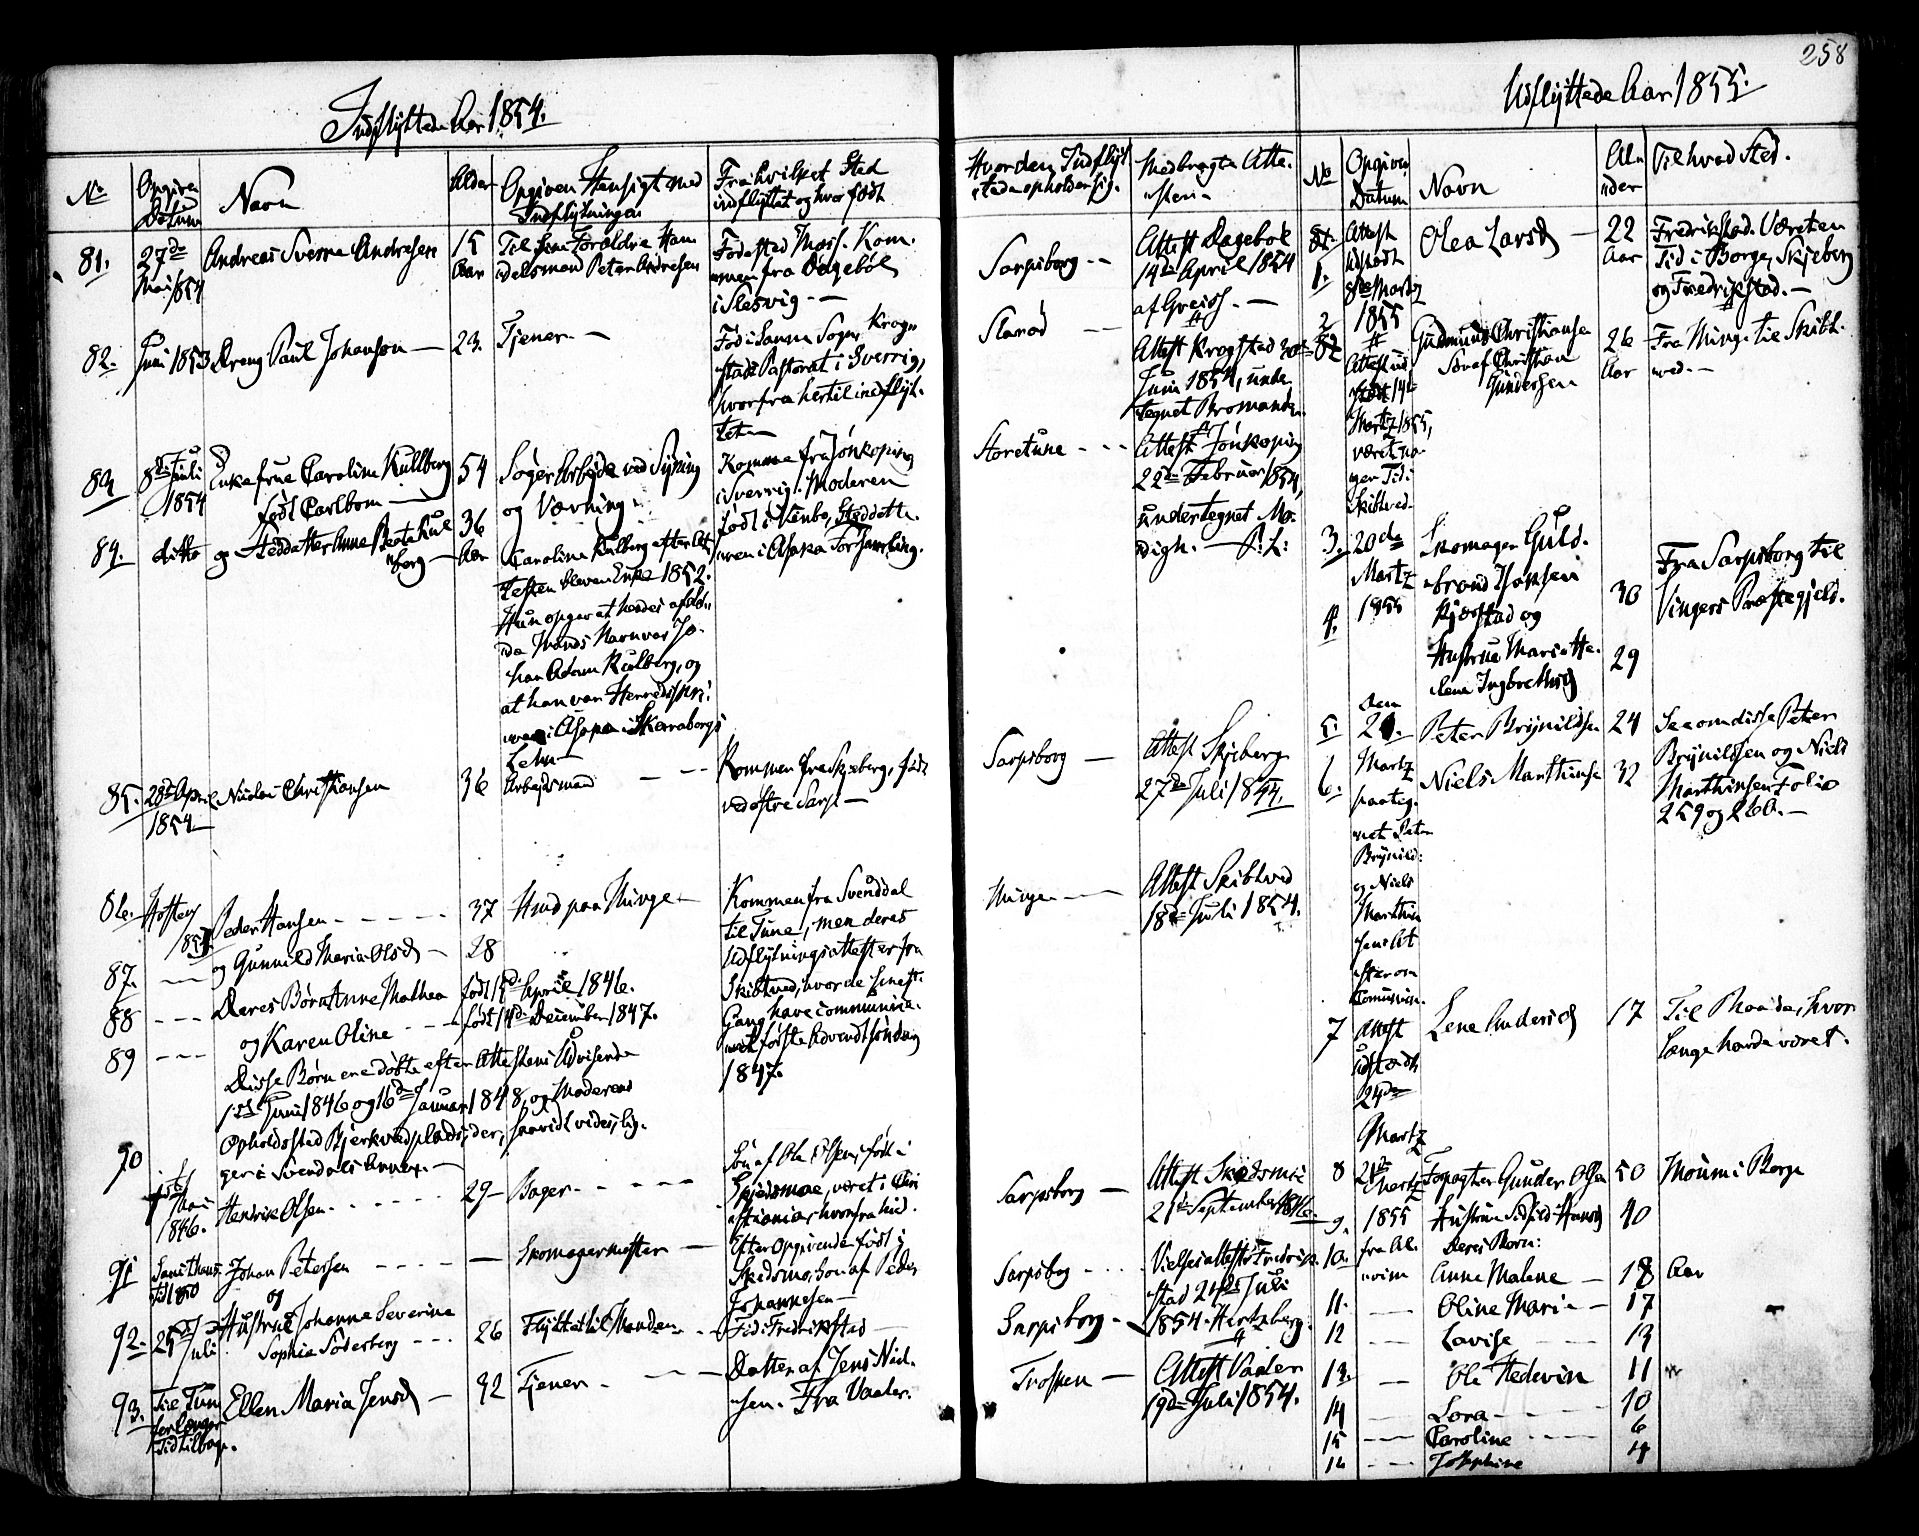 258
Indflyttede Aar 1854.
Udflyttede Aar 1855.
No
Opgiven
Datum
Navn
Alder
Opgiven Hensigt med
Indflytningen
Fra hvilket Sted
indflyttet og hvor født
Hvor den Indflyt
tede opholder sig.
Medbragte Atte
ster.
81.
27de
Mai 1854
Andreas Sverre Andresen
15
Aar
Til sine Forældre Han
delsmand Peter Andresen
Fødested Moss. Kom
men fra Dagebøl
i Slesvig.
Sarpsborg
Attest Dagebøl
14de April 1854
af Greiss.
82.
Juni 1853
Dreng Paul Johanson
23.
Tjener
Fød i Samme Sogn, Krog
stads Pastorat i Sverrig,
hvorfra hertil indflyt
tet
Attest Krogstad
Juni 1854, under
tegnet
83
8de Juli
1854
Enkefrue Caroline Kullberg
født Carlbom
54
Søger Arbeide ved Syning
og Vævning
Komne fra Jönköping
i Sverrig. Moderen
Attest Jönköping
22de Februar 1854,
undertegnet Mo
84.
ditto
og Steddatter Anne Beata Kul
berg
36
Aar
Caroline Kulberg efter At
testen bleven Enke 1852.
Hun opgav at hendes afdø
de Mands Navn var Jo
han Adam Kulberg, og
at han var
Lehn
85.
28de April
1854
Nicolai Christiansen
36
Arbeidsmand
Kommen fra Skjeberg, født
ved østre Sarp
Sarpsborg
Attest Skjeberg
27de Juli 1854.
86.
Høsten
1853
Peder Hansen
37
Huus paa Minge
Kommen fra Svenddal
til Tune, men deres
Udflytningsattester fra
Skibtved, hvor de sidste
Gang have communice
ret første Advent Søndag
1847.
Minge
Attest Skibtved
18de Juli 1854.
87.
og Gunnild Maria Olsd
28
88
Deres Børn Anne Mathea
født April 1846.
89
og Karen Oline
født 14de December 1847.
Disse Børn ere døbte efter Attestens Udvisende
1ste Juni 1846 og 16de Januar 1848, og Moderens
Opholdssted Bjerkvedplads, der, saavidt vides, lig
ger i Svendals Annex.
90
Mai
1846.
Hendrik Olsen
29
Bager
Søn af Ole Olsen, født i
Skedsmoe, været i Chri
stiania, hvorfra hid.
Sarpsborg
Attest Skedsmoe
21de September 1846.
91
Johan Petersen
Skomagermester
Efter Opgivende født i
Skedsmo, Søn af Peder
Johannesen
Sarpsborg
Vielsesattest Fredrik
stad 24de Juli
1854. Hertzberg.
92.
25de
Juli
og
Hustrue Johanne Severine
Sophie Søderberg
26
Flyttet til Manden
Fød i Fredrikstad
Sarpsborg
93.
Ellen Maria Jensd
Tjener
Datter af Jens Niel
sen. Fra Vaaler.
Attest Vaaler
19de Juli 1854.
No
Opgiven
Datum
Navn
Al
der
Til hvad Sted.
1.
Attest
udstædt
8de Martz
1855
Olea Larsd
22
Aar
Fredrikstad. Været en
Tid i Borge, Skjeberg
og Fredrikstad.
2
Attest ud
stædt 14de
Martz 1855,
været no
gen Tid i
Skibtved.
Gudmund Christiansen
Søn af Christian
Gundersen
26
Aar
Fra Minge til Skibt
ved.
3.
20de
Martz
1855
Skomager Guld
brand Hansen
Kjærstad og
30
Fra Sarpsborg til
Vingers Præstegjeld.
4.
Hustrue Maria He
lena Ingbrethsd
29
5.
den
Martz
Peter Brynildsen
24
See om disse Peter
Brynildsen og Niels
Marthinsen Folio
259 og 260.
6.
Niels Marthinsen
32
7
Attest
udstædt
24de
Martz
Lene Andersd
17
Til Raade, hvor
længe havde været.
8
21de
Martz
1855
Gunder Olsen
50
Moum i Borge
9.
Hustrue
40
Deres Børn:
10.
Anne Malene
18
Aar
11.
Oline Marie
17
12
Lovise
13
13.
Ole Hedevin
11
14
Lora
10
15
Caroline
6
16
Josephine
4